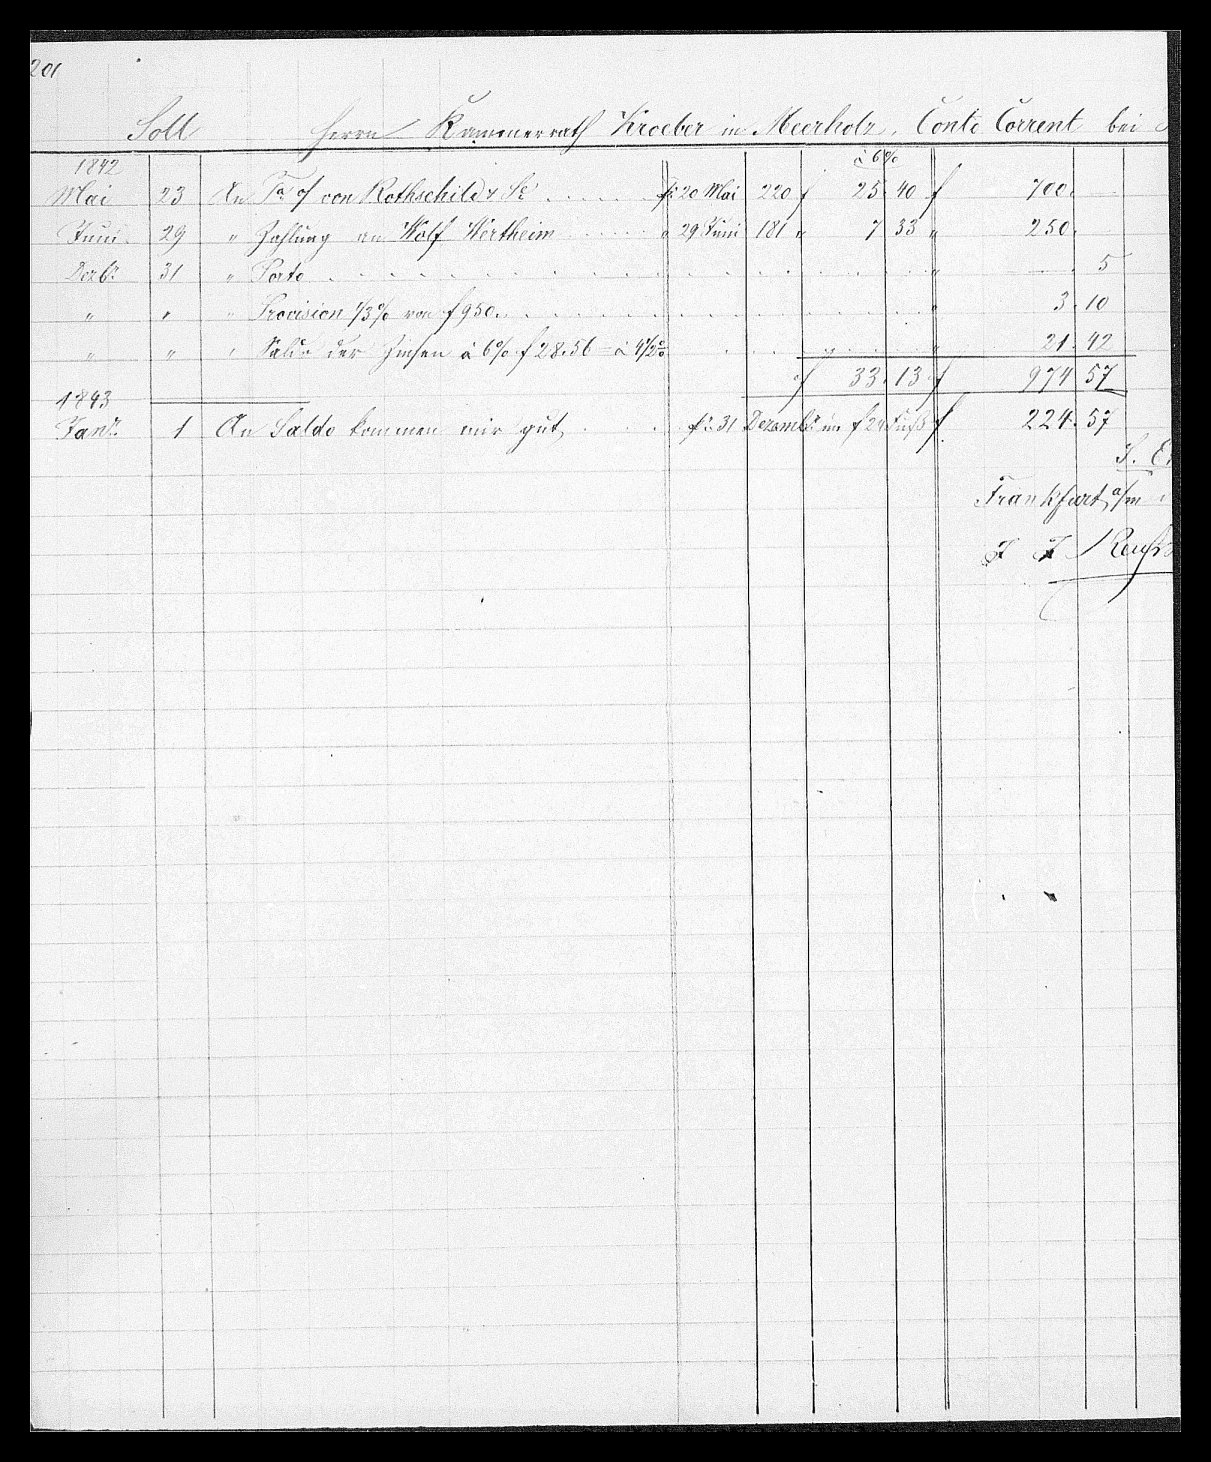 201
Soll Herrn Kammerrath Kroeber in Meerholz. Conto Corrent bei
1842 à 6%
Mai 23 An von Rothschild & Se pr 20 Mai 220 f 25 40 f 700.
Juni 29 " Zahlung an Wolf Wertheim " 29 Juni 181 " 7 33 " 250.
Dezbr 31 " Porto " — 5
" " " Provision 1/3% von f 950. " 3. 10
" " " Saldo der Zinsen à 6% f 28.56 – à 4 1/2% " 21. 42
f 33. 13 f 974 57
1843
Janr 1 An Saldo kommen mir gut pr 31 Dezembr im f 24 Fuß f 224. 57
S. E.
Frankfurt a/m
J J Reuß